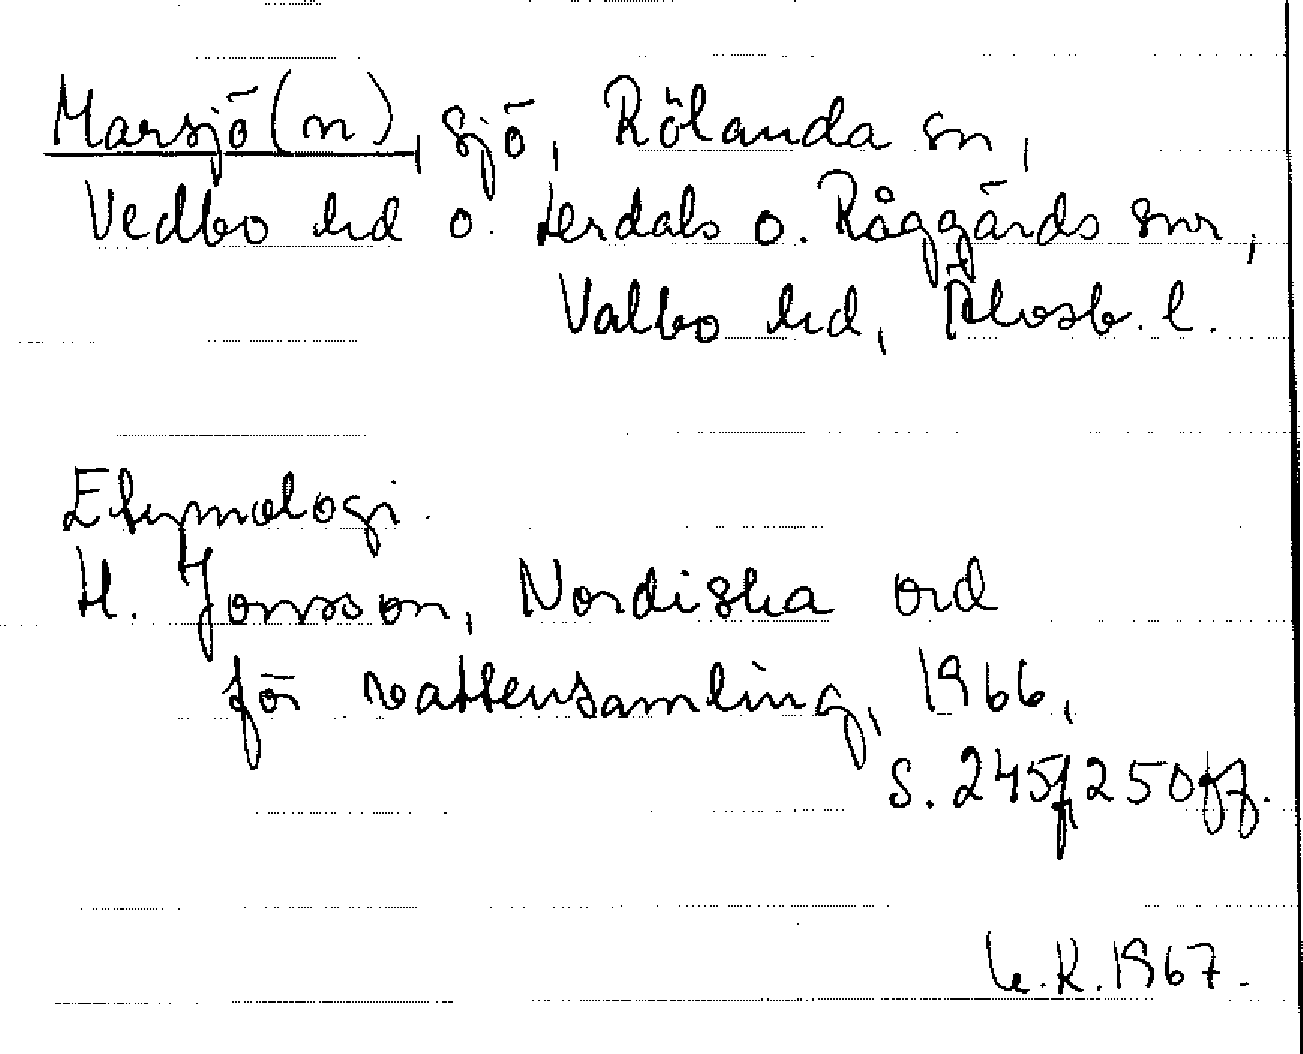 Marsjö(n), sjö, Rölanda sn,
Vedbo hd o. Lerdals o. Råggärds snr,
Valbo hd, Älvsb. l.
Etymologi.
H. Jonsson, Nordiska ord
för vattensamling, 1966,
s. 245f, 250ff.
K.R. 1967.